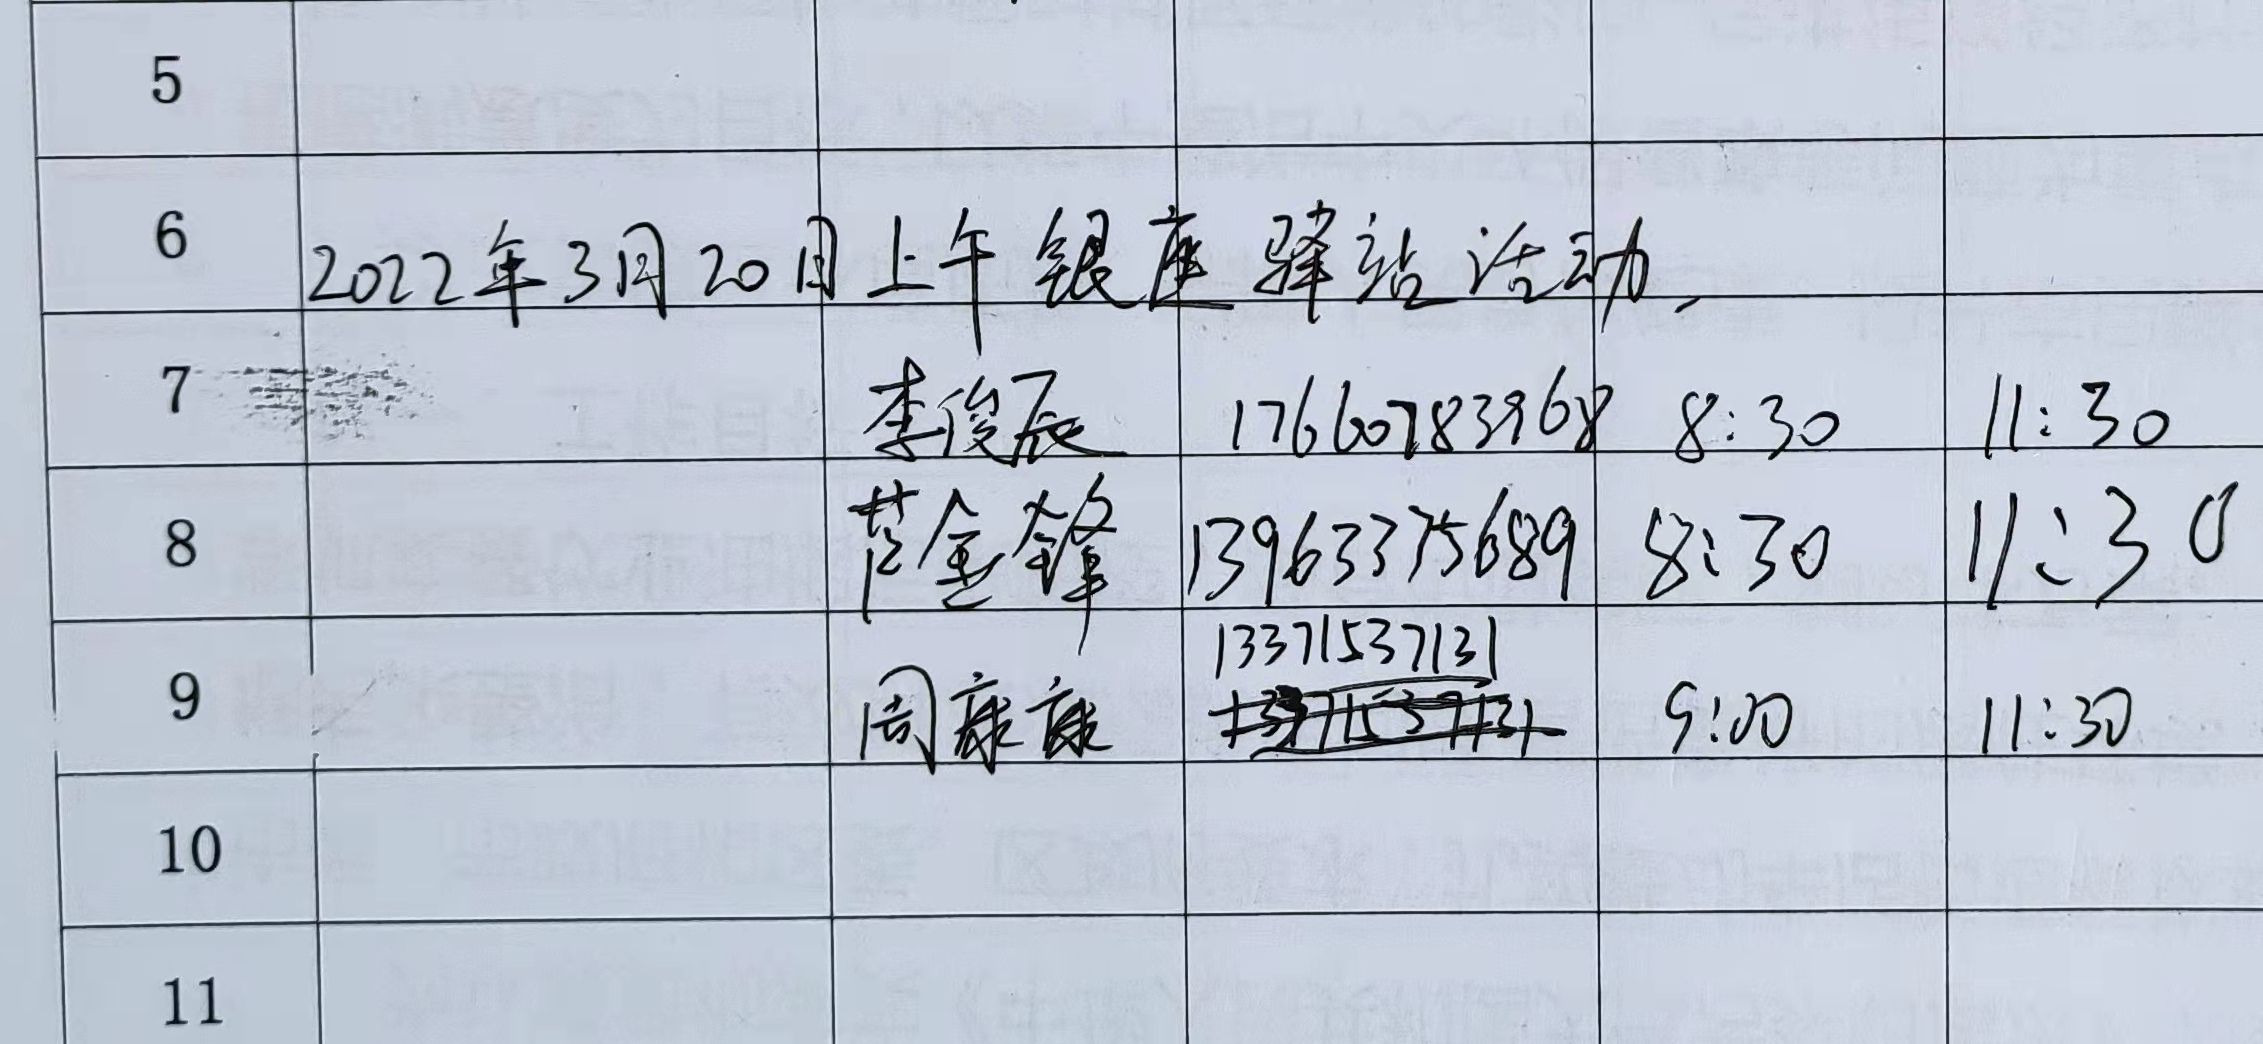 5
6 2022年3月20日上午银座驿站活动、
7 李俊辰 17660783968 8:30 11:30
8 金锋 13963375689 8:30 11:30
13371537131
9 周康康 9:00 11:30
10
11